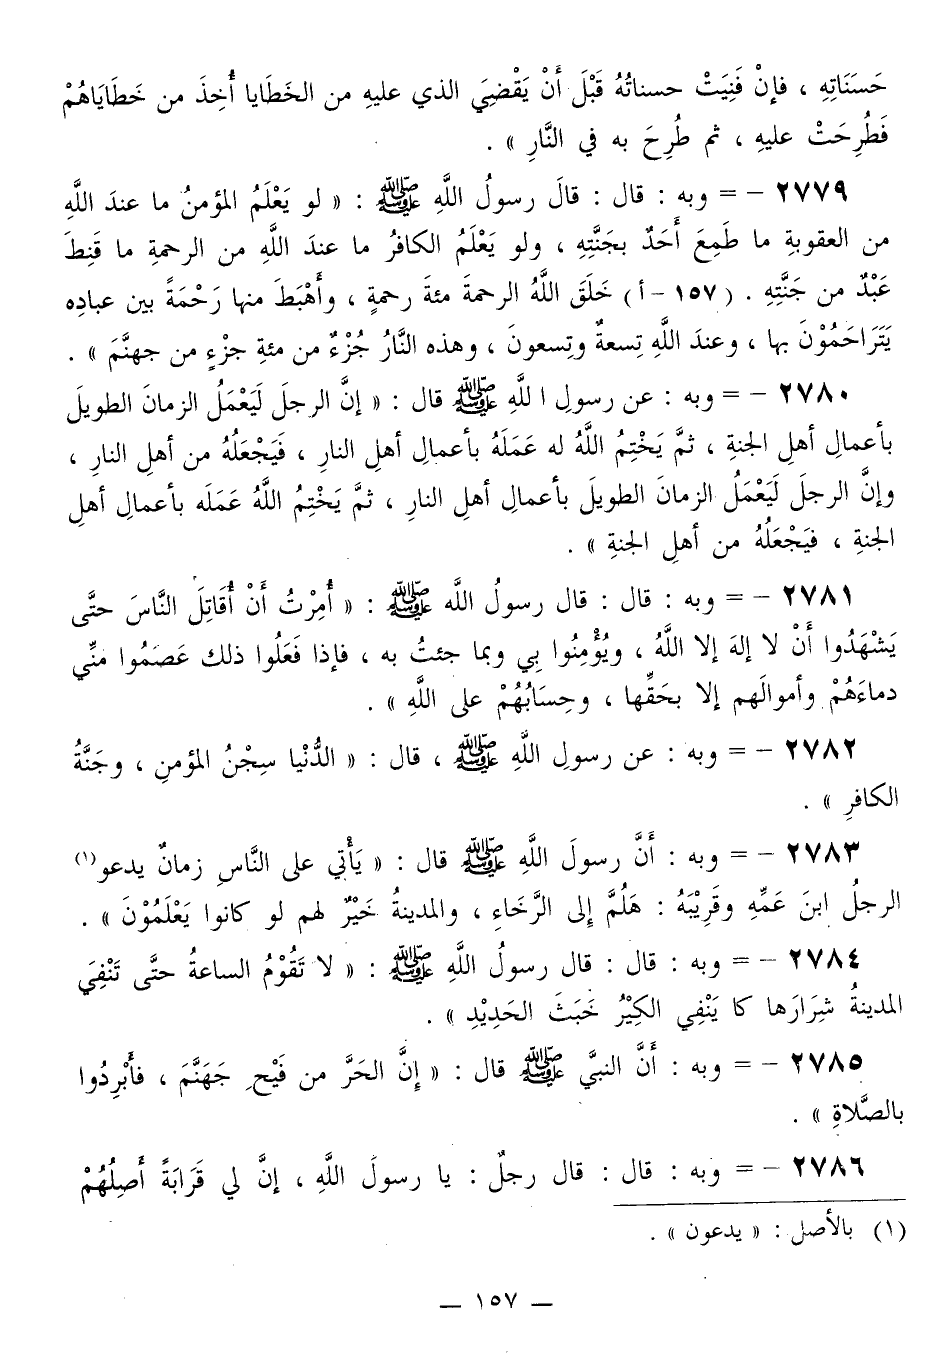 حَسَنَاتِهِ ، فإنْ فَنِيَتْ حسناتُهُ قَبْلَ أَنْ يَقْضِيَ الذي عليهِ من الخَطَايا أُخِذَ من خَطَايَاهُمْ
فَطُرِحَتْ عليهِ ، ثم طُرِحَ به في النَّارِ » .
٢٧٧٩ – = وبه : قال : قالَ رسولُ اللَّهِ ﷺ : « لو يَعْلَمُ المؤمنُ ما عندَ اللَّهِ
من العقوبةِ ما طَمِعَ أَحَدٌ بجَنَّتِهِ ، ولو يَعْلَمُ الكافرُ ما عندَ اللَّهِ من الرحمةِ ما قَنِطَ
عَبْدٌ من جَنَّتِهِ . (١٥٧ – أ) خَلَقَ اللَّهُ الرحمةَ مئةَ رحمةٍ ، وأَهْبَطَ منها رَحْمَةً بين عبادِه
يَتَرَاحَمُوْنَ بها ، وعندَ اللَّهِ تِسعةٌ وتِسعونَ ، وهذه النَّارُ جُزْءٌ من مئةِ جزْءٍ من جهنَّمَ » .
٢٧٨٠ – = وبه : عن رسولِ ا للَّهِ ﷺ قال : « إنَّ الرجلَ لَيَعْمَلُ الزمانَ الطويلَ
بأعمالِ أهلِ الجنةِ ، ثمَّ يَخْتِمُ اللَّهُ له عَمَلَهُ بأعمالِ أهلِ النارِ ، فَيَجْعَلُهُ من أهلِ النارِ ،
وإنَّ الرجلَ لَيَعْمَلُ الزمانَ الطويلَ بأعمالِ أهلِ النارِ ، ثمَّ يَخْتِمُ اللَّهُ عَمَلَه بأعمالِ أهلِ
الجنةِ ، فيَجْعَلُهُ من أهلِ الجنةِ » .
٢٧٨١ – = وبه : قال : قال رسولُ اللَّه ﷺ : « أُمِرْتُ أَنْ أُقَاتِلَ النَّاسَ حتَّى
يَشْهَدُوا أَنْ لا إلهَ إلا اللَّهُ ، ويُؤْمِنُوا بِي وبما جئتُ به ، فإذا فَعَلُوا ذلك عَصَمُوا منِّي
دماءَهُمْ وأموالَهم إلا بحَقِّها ، وحِسَابُهُمْ على اللَّهِ » .
٢٧٨٢ – = وبه : عن رسولِ اللَّهِ ﷺ ، قال : « الدُّنْيا سِجْنُ المؤمنِ ، وجَنَّةُ
الكافرِ » .
٢٧٨٣ – = وبه : أَنَّ رسولَ اللَّهِ ﷺ قال : « يَأْتي على النَّاسِ زمانٌ يدعو(١)
الرجلُ ابنَ عَمِّهِ وقَرِيْبَهُ : هَلُمَّ إلى الرَّخَاءِ ، والمدينةُ خَيْرٌ لهم لو كانوا يَعْلَمُوْنَ » .
٢٧٨٤ – = وبه : قال : قال رسولُ اللَّهِ ﷺ : « لا تَقُوْمُ الساعةُ حتَّى تَنْفِيَ
المدينةُ شِرَارَها كما يَنْفِي الكِيْرُ خَبَثَ الحَدِيْدِ » .
٢٧٨٥ – = وبه : أَنَّ النبيَّ ﷺ قال : « إنَّ الحَرَّ من فَيْحِ جَهَنَّمَ ، فأَبْرِدُوا
بالصَّلاةِ » .
٢٧٨٦ – = وبه : قال : قال رجلٌ : يا رسولَ اللَّهِ ، إنَّ لي قَرَابَةً أَصِلُهُمْ
(١) بالأصل : « يدعون » .
— ١٥٧ —